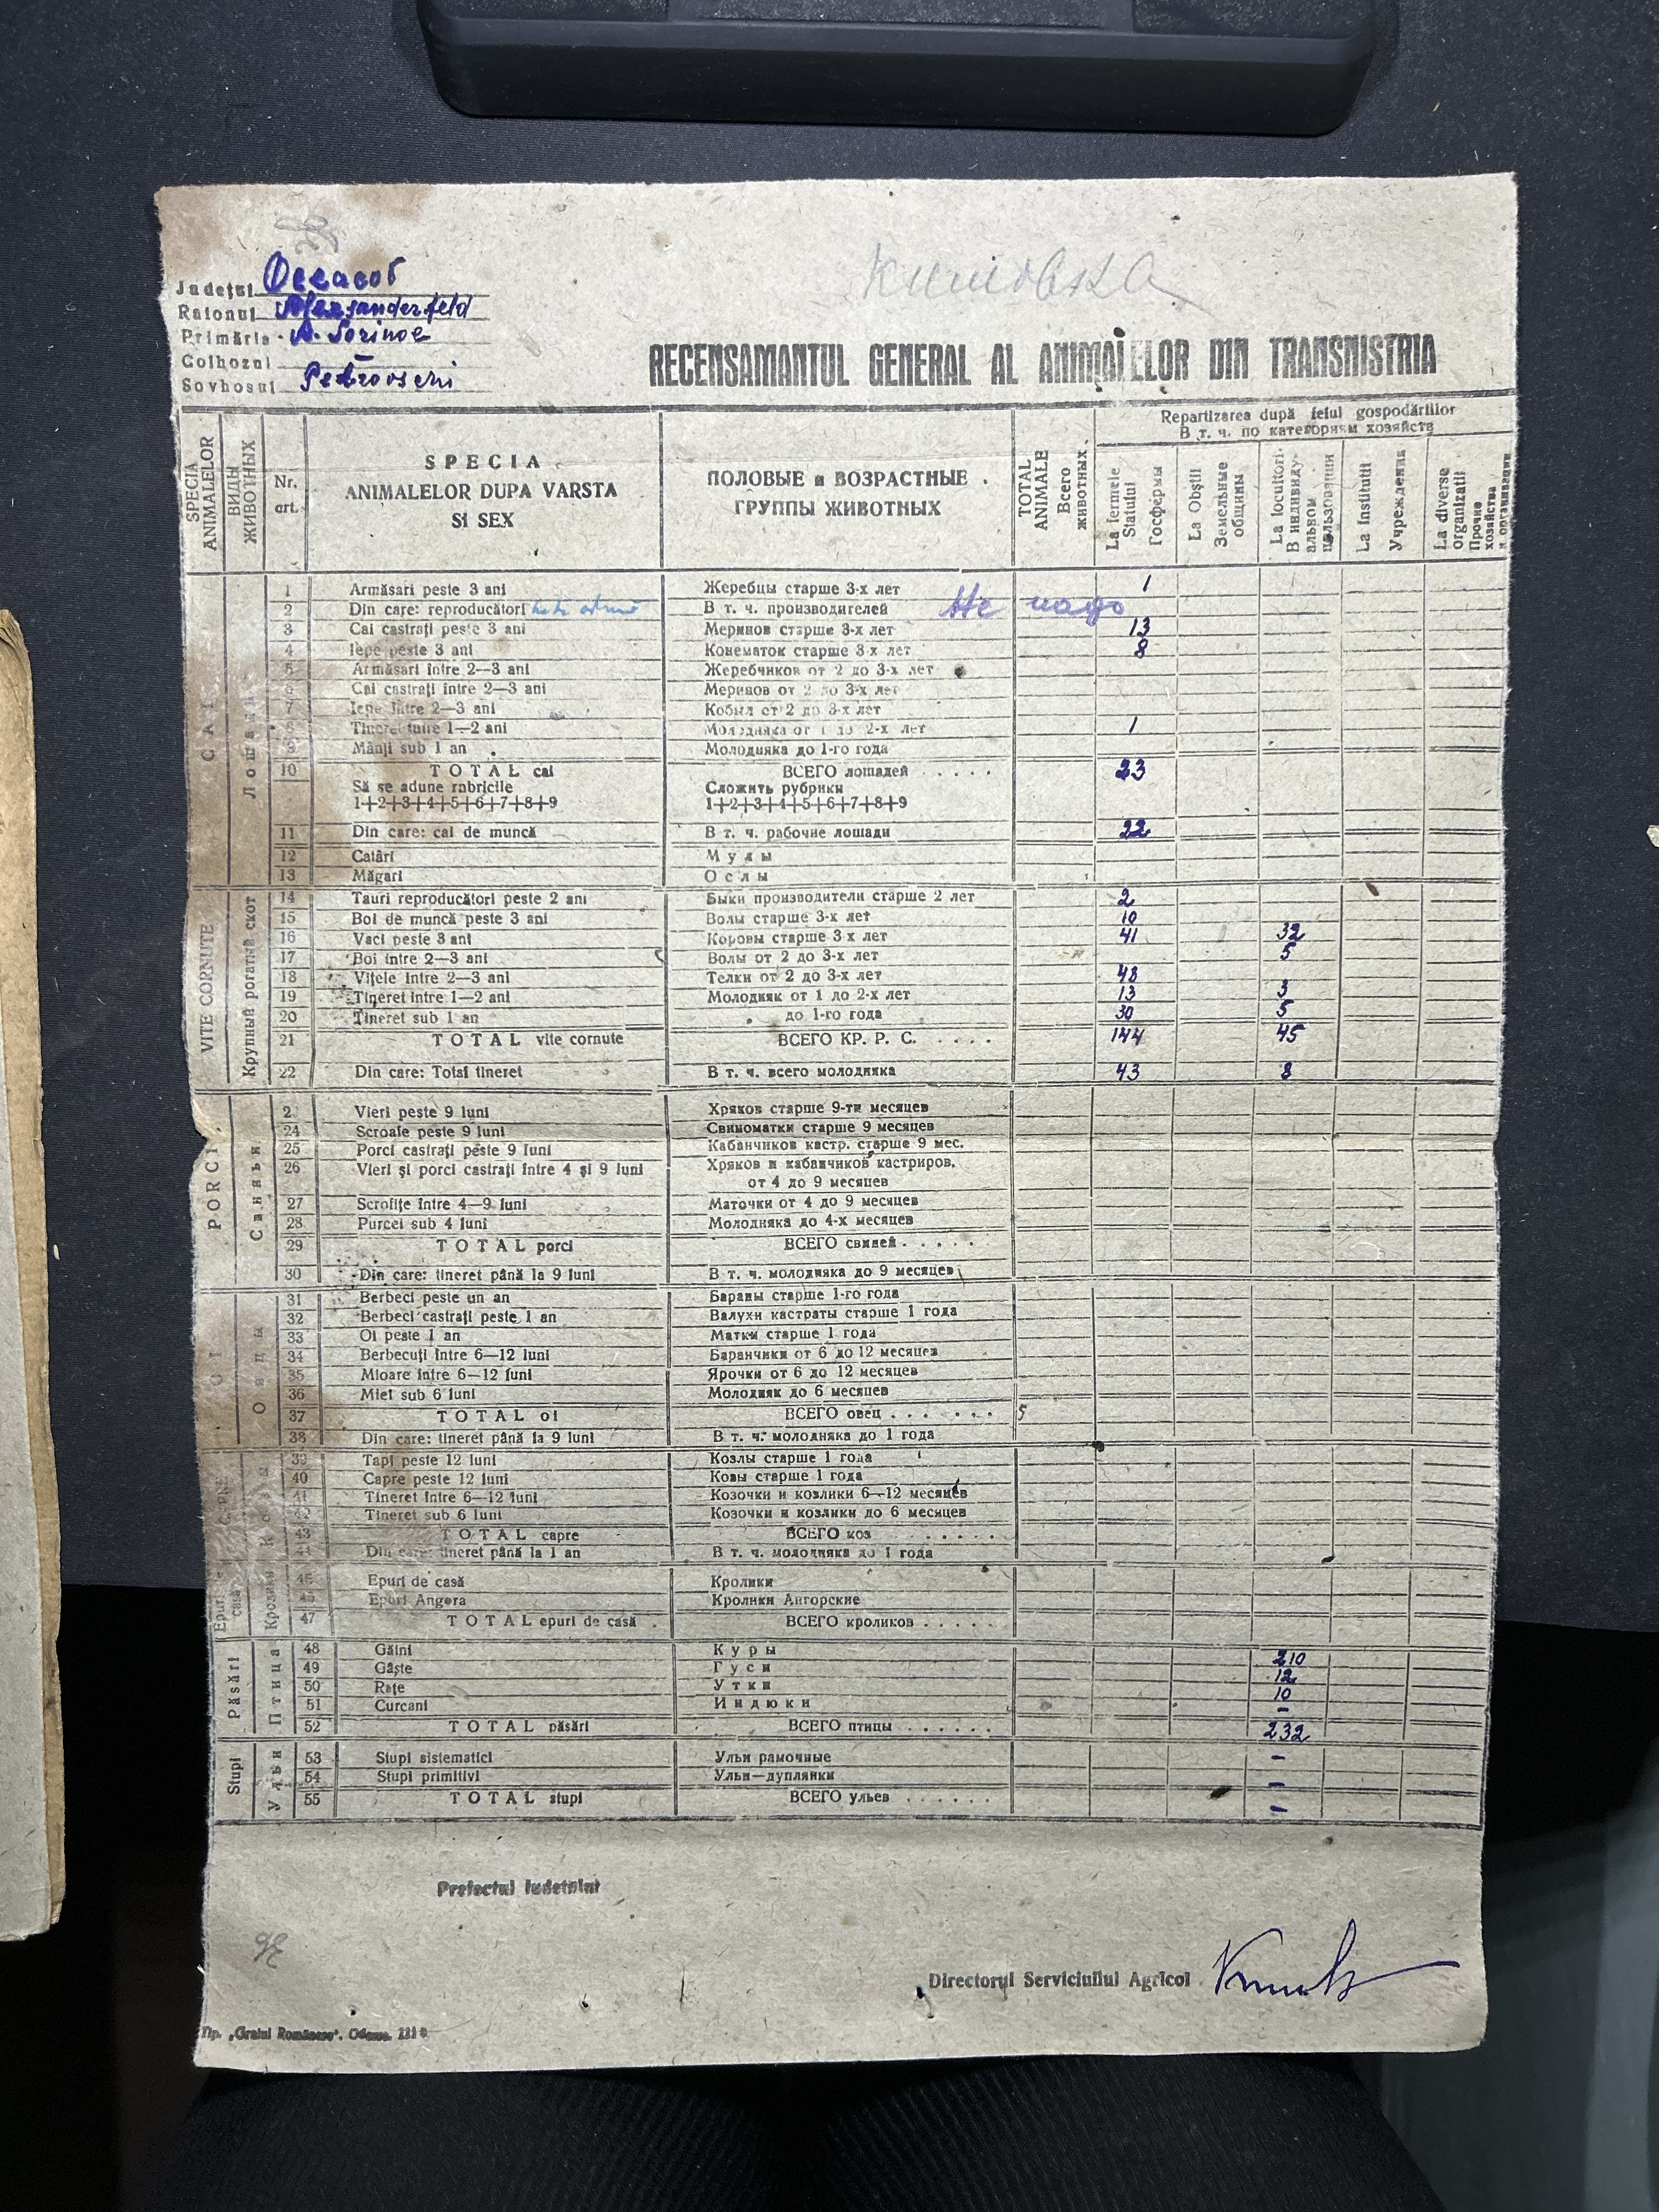 Județul Oceacov
Raionul Alexsanderfeld
Primăria A. Sorinoe
Colhozul —
Sovhosul Petrovschi
RECENSAMANTUL GENERAL AL ANIMALELOR DIN TRANSNISTRIA
SPECIA ANIMALELOR
ВИДЫ ЖИВОТНЫХ
Nr. art.
SPECIA
ANIMALELOR DUPA VARSTA
SI SEX
ПОЛОВЫЕ и ВОЗРАСТНЫЕ
ГРУППЫ ЖИВОТНЫХ
TOTAL ANIMALE
Всего животных
Repartizarea după felul gospodăriilor
В т. ч. по категориям хозяйств
La fermele Statului
Госфермы
La Obștii
Земельные общины
La locuitori
В индивидуальном пользовании
La Instituții
Учреждения
La diverse organizații
Прочие хозяйства и организации
CAI
Лошади
1 Armăsari peste 3 ani Жеребцы старше 3-х лет 1
2 Din care: reproducători В т. ч. производителей Не надо
3 Cai castrați peste 3 ani Меринов старше 3-х лет 13
4 Iepe peste 3 ani Конематок старше 3-х лет 8
5 Armăsari între 2—3 ani Жеребчиков от 2 до 3-х лет
6 Cai castrați între 2—3 ani Меринов от 2 до 3-х лет
7 Iepe între 2—3 ani Кобыл от 2 до 3-х лет
8 Tineret între 1—2 ani Молодняка от 1 до 2-х лет 1
9 Mânji sub 1 an Молодняка до 1-го года
10 TOTAL cai ВСЕГО лошадей . . . . 23
Să se adune rubricile Сложить рубрики
1+2+3+4+5+6+7+8+9 1+2+3+4+5+6+7+8+9
11 Din care: cai de muncă В т. ч. рабочие лошади 22
12 Catâri Мулы
13 Măgari Ослы
VITE CORNUTE
Крупный рогатый скот
14 Tauri reproducători peste 2 ani Быки производители старше 2 лет 2
15 Boi de muncă peste 3 ani Волы старше 3-х лет 10
16 Vaci peste 3 ani Коровы старше 3 х лет 41 32
17 Boi între 2—3 ani Волы от 2 до 3-х лет 5
18 Vițele între 2—3 ani Телки от 2 до 3-х лет 48
19 Tineret între 1—2 ani Молодняк от 1 до 2-х лет 13 3
20 Tineret sub 1 an „ до 1-го года 30 5
21 TOTAL vite cornute ВСЕГО КР. Р. С. . . . . 144 45
22 Din care: Total tineret В т. ч. всего молодняка 43 8
PORCI
Свиньи
2 Vieri peste 9 luni Хряков старше 9-ти месяцев
24 Scroafe peste 9 luni Свиноматки старше 9 месяцев
25 Porci castrați peste 9 luni Кабанчиков кастр. старше 9 мес.
26 Vieri și porci castrați între 4 și 9 luni Хряков и кабанчиков кастриров.
от 4 до 9 месяцев
27 Scrofițe între 4—9 luni Маточки от 4 до 9 месяцев
28 Purcei sub 4 luni Молодняка до 4-х месяцев
29 TOTAL porci ВСЕГО свиней . . . . .
30 Din care: tineret până la 9 luni В т. ч. молодняка до 9 месяцев
OI
Овцы
31 Berbeci peste un an Бараны старше 1-го года
32 Berbeci castrați peste 1 an Валухи кастраты старше 1 года
33 Oi peste 1 an Матки старше 1 года
34 Berbecuți între 6—12 luni Баранчики от 6 до 12 месяцев
35 Mioare între 6—12 luni Ярочки от 6 до 12 месяцев
36 Miei sub 6 luni Молодняк до 6 месяцев
37 TOTAL oi ВСЕГО овец . . . . . . 5
38 Din care: tineret până la 9 luni В т. ч. молодняка до 1 года
CAPRE
Козы
39 Tapi peste 12 luni Козлы старше 1 года
40 Capre peste 12 luni Козы старше 1 года
41 Tineret între 6—12 luni Козочки и козлики 6—12 месяцев
42 Tineret sub 6 luni Козочки и козлики до 6 месяцев
43 TOTAL capre ВСЕГО коз . . . . .
44 Din care: tineret până la 1 an В т. ч. молодняка до 1 года
Epuri de casă
Кролики
45 Epuri de casă Кролики
46 Epuri Angora Кролики Ангорские
47 TOTAL epuri de casă ВСЕГО кроликов . . . . .
Păsări
Птица
48 Găini Куры 210
49 Gâște Гуси 12
50 Rațe Утки 10
51 Curcani Индюки –
52 TOTAL păsări ВСЕГО птицы . . . . . . 232
Stupi
Ульи
53 Stupi sistematici Ульи рамочные –
54 Stupi primitivi Ульи—дуплянки –
55 TOTAL stupi ВСЕГО ульев . . . . . . –
Prefectul Iudetului
Directorul Serviciului Agricol
Tip. „Graiul Românesc“. Odessa.